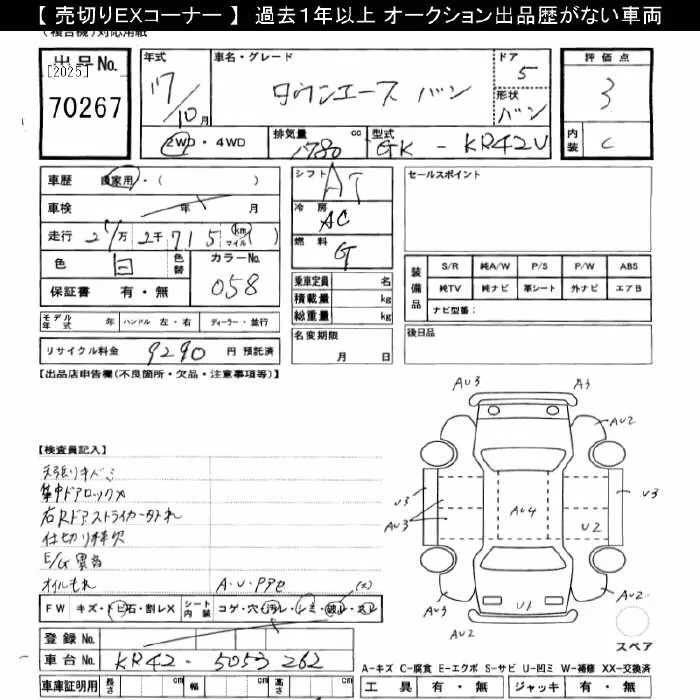 【 売切りEXコーナー 】 過去1年以上 オークション出品歴がない車両
(複合機)対応用紙
出品No.
[2025]
70267
年式
17/10月
車名・グレード
タウンエース バン
ドア
5
形状
バン
評価点
3
内装
C
2WD・4WD
排気量
1780 cc
型式
GK - KR42V
車歴 自家用・( )
車検 年 月
走行 2万 2千 715 km マイル ( )
色 白 色替 カラーNo. 058
保証書 有・無
シフト
AT
冷房
AC
燃料
G
セールスポイント
装備品 S/R 純A/W P/S P/W ABS
純TV 純ナビ 革シート 外ナビ エアB
ナビ型番:
乗車定員 名
積載量 kg
総重量 kg
モデル年式 年 ハンドル 左・右 ディーラー・並行
名変期限
月 日
後日品
リサイクル料金 9290 円 預託済
【出品店申告欄(不良箇所・欠品・注意事項等)】
AU3
A3
AU2
AU2
U3
U3
AU3
AU3
AU4
U2
AU3
AU2
U1
AU2
スペア
【検査員記入】
天張りキズミ
集中ドアロックメ
右Rドアストライカー
仕切り棒欠
E/G異音
オイルもれ
A・U・PPC
FW キズ・トビ石・割レX シート内装 コゲ・穴・汚レ・シミ・破レ・スレ
登録No.
車台No. KR42 - 5053262
車庫証明用 長さ cm 幅 cm 高さ cm
A-キズ C-腐食 E-エクボ S-サビ U-凹ミ W-補修 XX-交換済
工具 有・無 ジャッキ 有・無